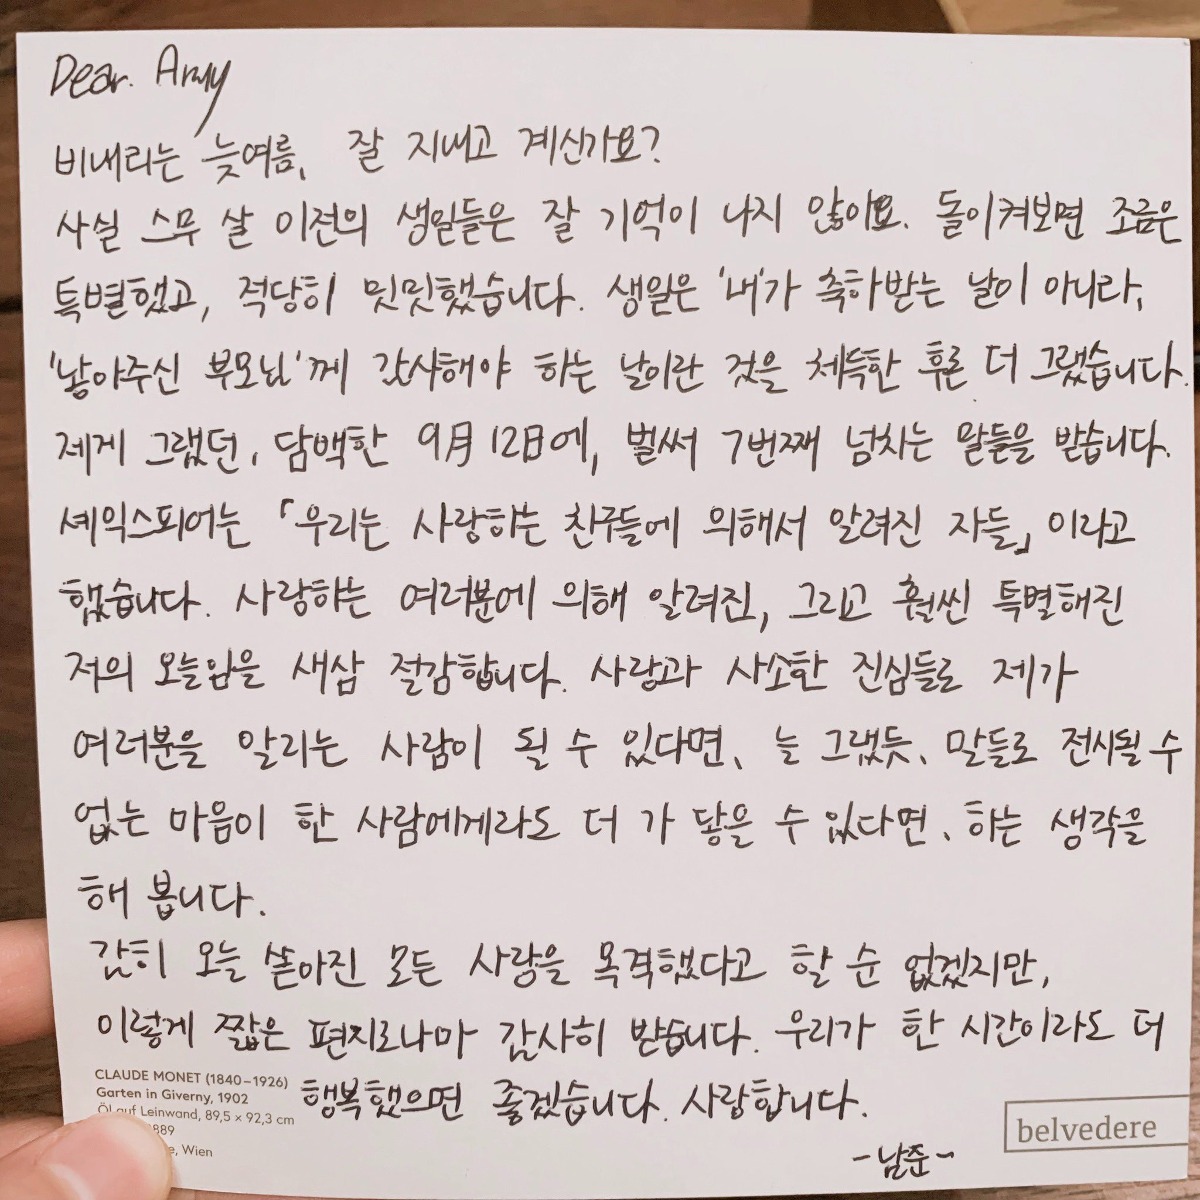 Dear. Army
비내리는 늦여름, 잘 지내고 계신가요?
사실 스무 살 이전의 생일들은 잘 기억이 나지 않아요. 돌이켜보면 조금은
특별했고, 적당히 밋밋했습니다. 생일은 '내'가 축하받는 날이 아니라,
'낳아주신 부모님'께 감사해야 하는 날이란 것을 체득한 후론 더 그랬습니다.
제게 그랬던, 담백한 9月 12日에, 벌써 7번째 넘치는 말들을 받습니다.
셰익스피어는 「우리는 사랑하는 친구들에 의해서 알려진 자들」이라고
했습니다. 사랑하는 여러분에 의해 알려진, 그리고 훨씬 특별해진
저의 오늘임을 새삼 절감합니다. 사랑과 사소한 진심들로 제가
여러분을 알리는 사람이 될 수 있다면, 늘 그랬듯, 말들로 전시될 수
없는 마음이 한 사람에게라도 더 가 닿을 수 있다면, 하는 생각을
해 봅니다.
감히 오늘 쏟아진 모든 사랑을 목격했다고 할 순 없겠지만,
이렇게 짧은 편지로나마 감사히 받습니다. 우리가 한 시간이라도 더
행복했으면 좋겠습니다. 사랑합니다.
-남준-
CLAUDE MONET (1840–1926)
Garten in Giverny, 1902
Öl auf Leinwand, 89,5 × 92,3 cm
889
e, Wien
belvedere